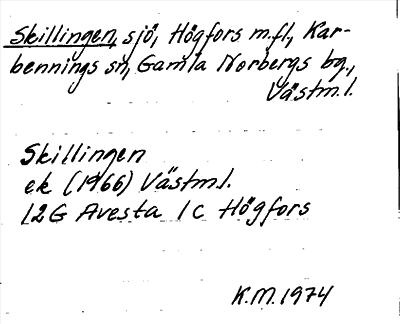 Skillingen, sjö, Högfors m.fl., Kar-
bennings sn, Gamla Norbergs bg.,
Västm.l.
Skillingen
ek (1966) Västm.l.
12G Avesta 1c Högfors
K.M. 1974